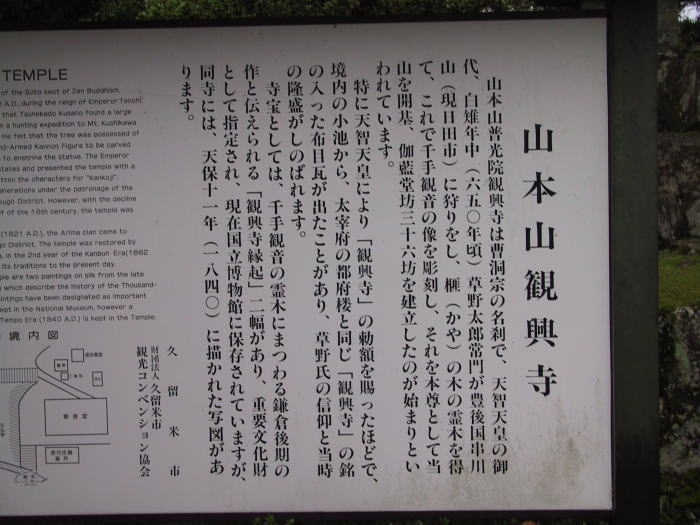 山本山観興寺
山本山普光院観興寺は曹洞宗の名刹で、天智天皇の御
代、白雉年中（六五〇年頃）草野太郎常門が豊後国串川
山（現日田市）に狩りをし、榧（かや）の木の霊木を得
て、これで千手観音の像を彫刻し、それを本尊として当
山を開基、伽藍堂坊三十六坊を建立したのが始まりとい
われています。
特に天智天皇により「観興寺」の勅額を賜ったほどで、
境内の小池から、太宰府の都府楼と同じ「観興寺」の銘
の入った布目瓦が出たことがあり、草野氏の信仰と当時
の隆盛がしのばれます。
寺宝としては、千手観音の霊木にまつわる鎌倉後期の
作と伝えられる「観興寺縁起」二幅があり、重要文化財
として指定され、現在国立博物館に保存されていますが、
同寺には、天保十一年（一八四〇）に描かれた写図があ
ります。
久留米市
財団法人久留米市
観光コンベンション協会
TEMPLE
of the Soto sect of Zen Buddhism.
A.D., during the reign of Emperor Tenchi.
that Tsunekado Kusano found a large
n a hunting expedition to Mt. Kushikawa
He felt that the tree was possessed of
nd-Armed Kannon Figure to be carved
to enshrine the statue. The Emperor
states and presented the temple with a
tten the characters for "Kankoji".
enerations under the patronage of the
kugo District. However, with the decline
f of the 16th century, the temple was
(1621 A.D.), the Arima clan came to
go District. The temple was restored by
, in the 2nd year of the Kanbun Era(1662
its traditions to the present day.
ple are two paintings on silk from the late
which describe the history of the Thousand-
intings have been designated as important
ept in the National Museum, however a
Tempo Era (1840 A.D.) is kept in the Temple.
境内図
観音堂
歴代住職
墓所